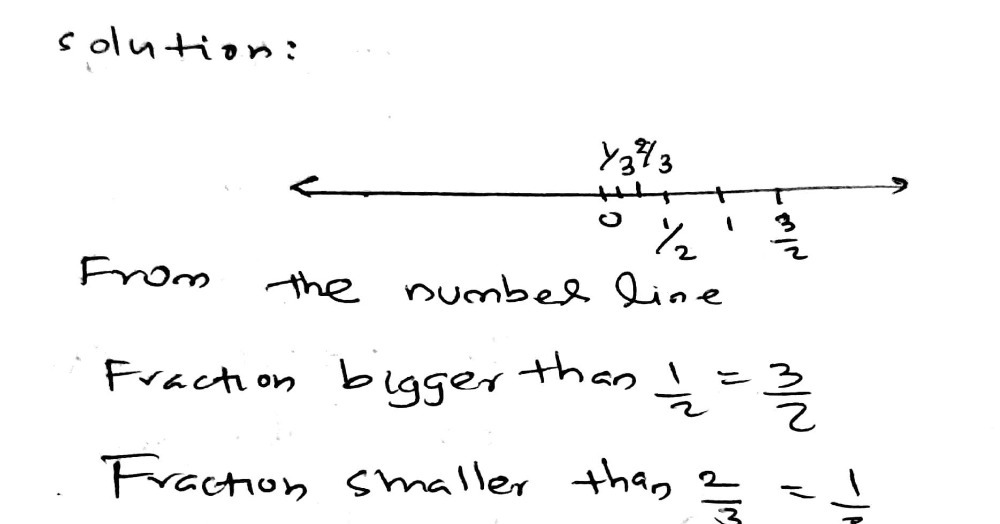 solution:
1/3 2/3
0 1/2 1 3/2
From the number line
Fraction bigger than 1/2 = 3/2
Fraction smaller than 2/3 = 1/